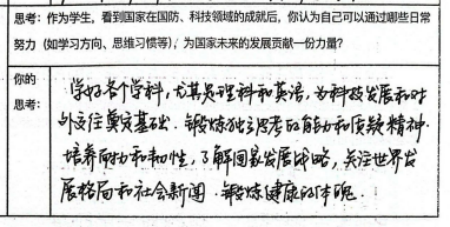 思考：作为学生，看到国家在国防、科技领域的成就后，你认为自己可以通过哪些日常
努力（如学习方向、思维习惯等），为国家未来的发展贡献一份力量？
你的
思考：
学好各个学科，尤其是理科和英语，为科技发展和对
外交往奠定基础．锻炼独立思考的能力和质疑精神．
培养耐力和韧性，了解国家发展战略，关注世界发
展格局和社会新闻．锻炼健康的体魄．